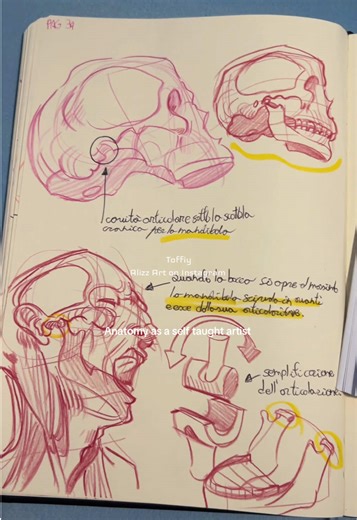 PAG 34
cavità articolare sotto la scatola
cranica per la mandibola
Toffiy
Alizz Art on instagram
quando la bocca si apre al massimo
la mandibola scivola in avanti
esce dalla sua articolazione.
Anatomy as a self taught artist
semplificazione
dell'articolazione